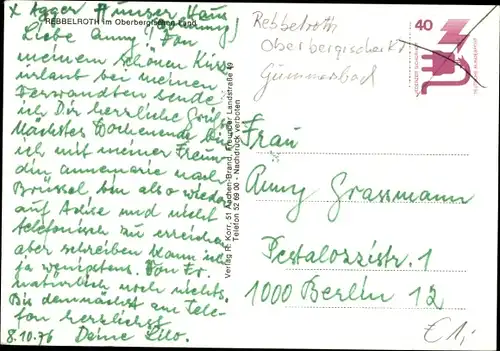 x Agger # unser Haus
REBBELROTH im Oberbergischen Land
Liebe Anny! Von
meinem schönen Kurz-
urlaub bei meinen
Verwandten sende
ich Dir herzliche Grüße
Nächstes Wochenende bin
ich mit meiner Freun
din Annemarie nach
Brüssel bin also wieder
auf Achse und nicht
telefonisch zu erreichen
aber schreiben kann ich
ja wenigstens. Von Fr.
natürlich noch nichts.
Bis demnächst am Tele-
fon herzlichst
8.10.76 Deine Lilo.
Verlag H. Korr, 51 Aachen-Brand, Freunder Landstraße 49
Telefon 52 69 00 - Nachdruck verboten
Rebbelroth
Oberbergischer Kr
Gummersbach
40
DEUTSCHE BUNDESPOST
Frau
Anny Grassmann
Pestalozzistr. 1
1000 Berlin 12
€1,-